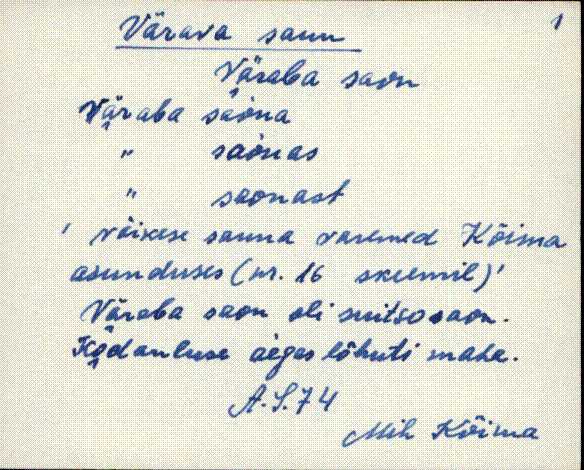 1
Värava saun
Väraba saon
Väraba saona
" saonas
" saonast
' väikese sauna varemed Kõima
asunduses (nr. 16 skeemil)'
Väraba saon oli suitsosaon.
Kodanluse aeges lõhuti maha.
A.S.74
Mih Kõima